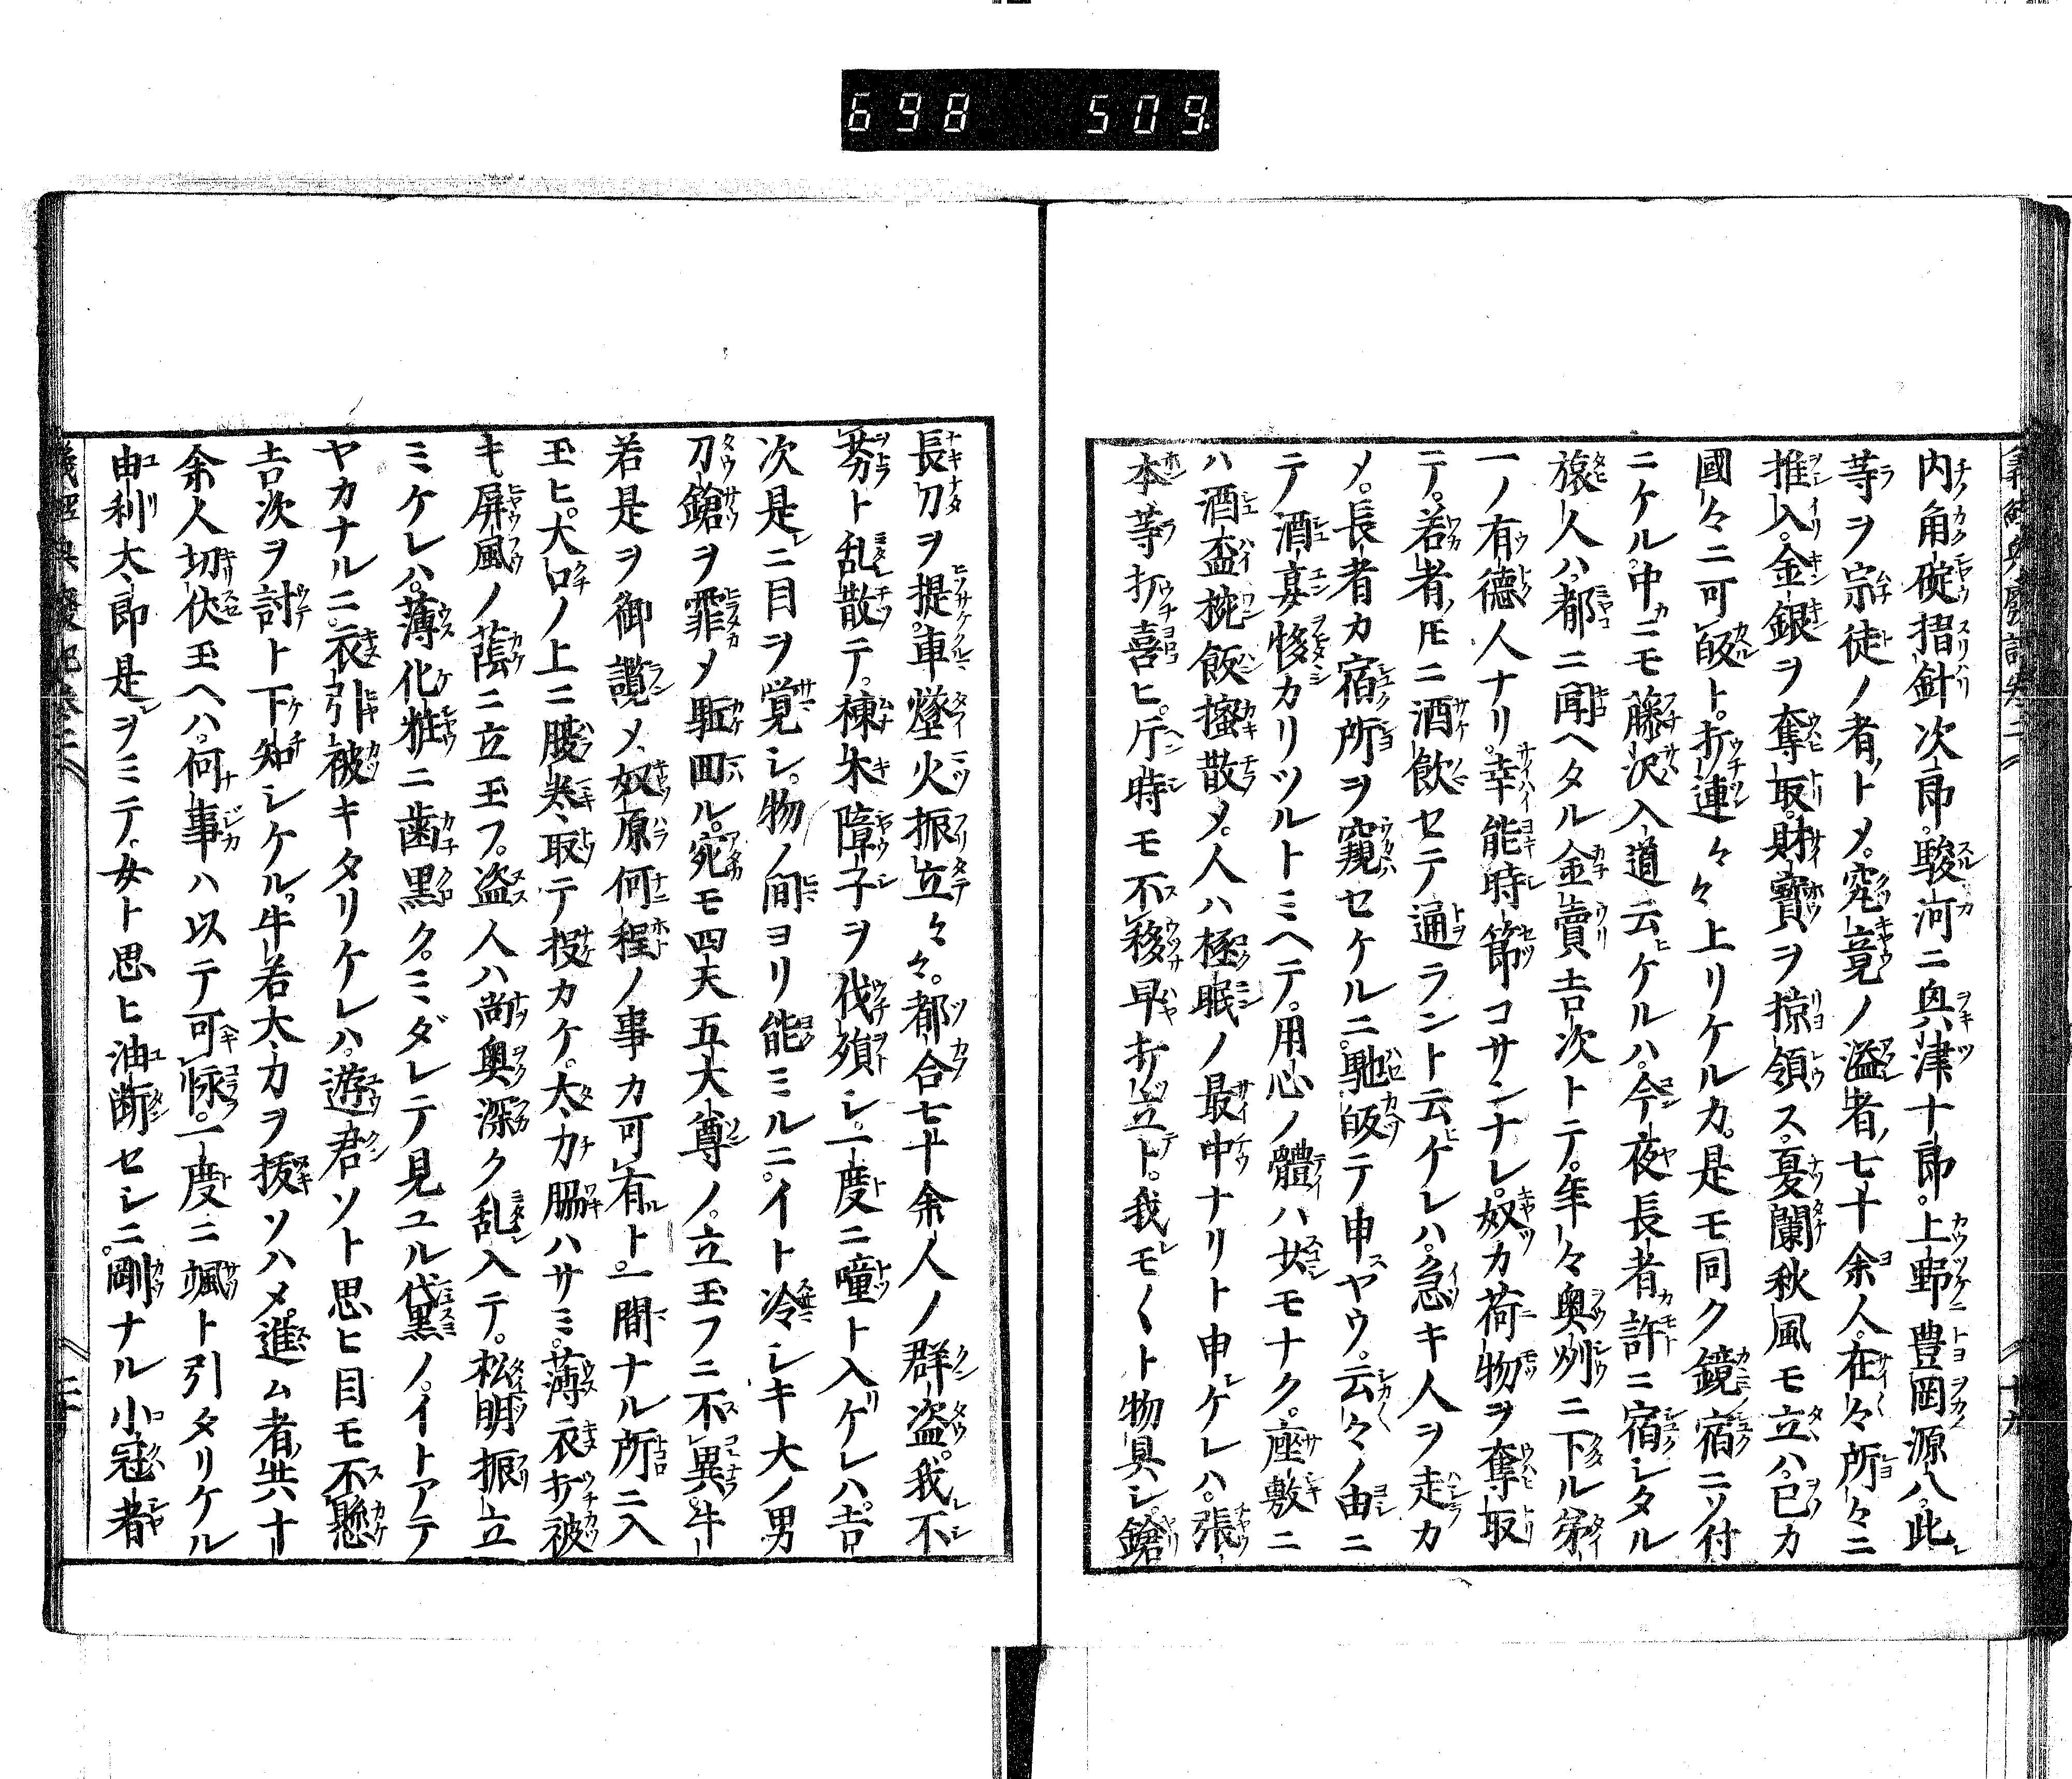 698 509
内角碇摺針次郎。駿河ニ興津十郎。上野豊岡源八。此
等ヲ宗徒ノ者トメ。究竟ノ溢者七十余人。在々所々ニ
推入。金銀ヲ奪取。財寶ヲ掠領ス。夏闌秋風モ立ハ。已カ
國々ニ可皈ト。打連々々上リケルカ。是モ同ク鏡宿ニソ付
ニケル。中ニモ藤沢入道云ケルハ。今夜長者許ニ宿シタル
旅人ハ。都ニ聞ヘタル金賣吉次トテ。年々奥州ニ下ル第
一ノ有徳人ナリ。幸能時節コサンナレ。奴カ荷物ヲ奪取
テ。若者ノ𪜈ニ酒飲セテ通ラント云ケレハ。急キ人ヲ走カ
メ。長者カ宿所ヲ窺セケルニ。馳皈テ申ヤウ。云々ノ由ニ
テ酒宴移カリツルトミヘテ。用心ノ體ハ少モナク。座敷ニ
ハ酒盃椀飯撥散メ。人ハ極眠ノ最中ナリト申ケレハ。張
本等打喜ヒ。片時モ不移早打立ト。我モ〱ト物具シ。鎗
長刀ヲ提。車燈火振立々々。都合七十余人ノ群盗。我不
劣ト乱散テ。棟木障子ヲ伐殞シ。一度ニ噇ト入ゲレハ。吉
次是ニ目ヲ覚シ。物ノ間ヨリ能ミルニ。イト冷シキ大ノ男
刀鎗ヲ霏メ駈回ル。宛モ四天五大尊ノ。立玉フニ不異。牛
若是ヲ御讃メ。奴原何程ノ事カ可有ト。一間ナル所ニ入
玉ヒ。大口ノ上ニ腰巻取テ投カケ。太刀脇ハサミ。薄衣打被
キ。屏風ノ蔭ニ立玉フ。盗人ハ尚奥深ク乱入テ。松明振立
ミケレハ。薄化粧ニ歯黒ク。ミダレテ見ユル黛ノ。イトアテ
ヤカナルニ。衣引被キタリケレハ。遊君ソト思ヒ目モ不懸
吉次ヲ討ト下知シケル。牛若太刀ヲ抜ソハメ。進ム者共十
余人切伏玉ヘハ。何事ハ以テ可怺。一度ニ颯ト引タリケル
由利太郎是ヲミテ。女ト思ヒ油断セシニ。剛ナル小冠者